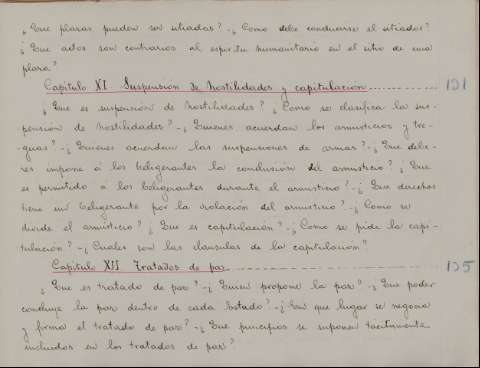 ¿Que plazas pueden ser sitiadas? -¿Como debe conducirse el sitiador?
¿Que actos son contrarios al espiritu humanitario en el sitio de una
plaza?
Capitulo XI Suspensión de hostilidades y capitulacion 131
¿Que es suspensión de hostilidades? ¿Como se clasifica la sus-
pensión de hostilidades? -¿Quienes acuerdan los armisticios y tre-
guas? -¿Quienes acuerdan las suspensiones de armas? -¿Que debe-
res impone á los beligerantes la conclusión del armisticio? ¿Que
es permitido á los beligerantes durante el armisticio? -¿Que derechos
tiene un beligerante por la violación del armisticio? -¿Como se
el armisticio? ¿Que es capitulación? -¿Como se pide la capi-
tulación? -¿Cuales son las clausulas de la capitulacion?
Capitulo XII Tratados de paz 135
¿Que es tratado de paz? -¿Quien propone la paz? -¿Que poder
concluye la paz dentro de cada Estado? -¿En que lugar se negocia
y firma el tratado de paz? -¿Que principios se suponen tácitamente
incluidos en los tratados de paz?